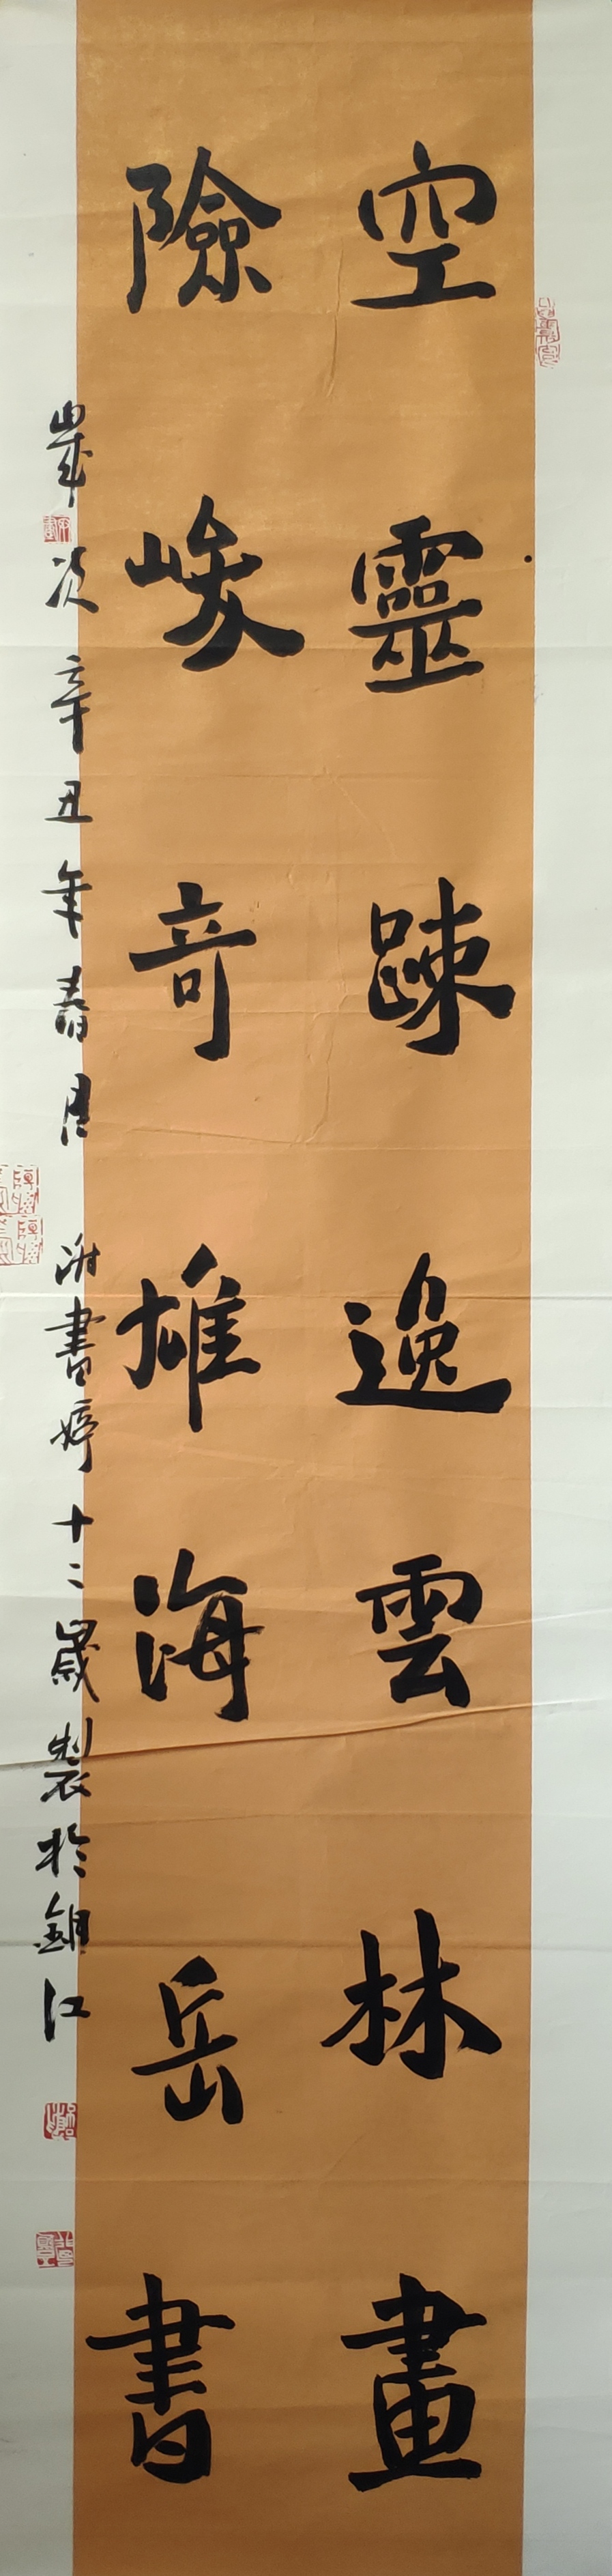 空靈踈逸雲林畫
險峻奇雄海岳書
歲次辛丑年春月 谢書婷十二歲製於錦江